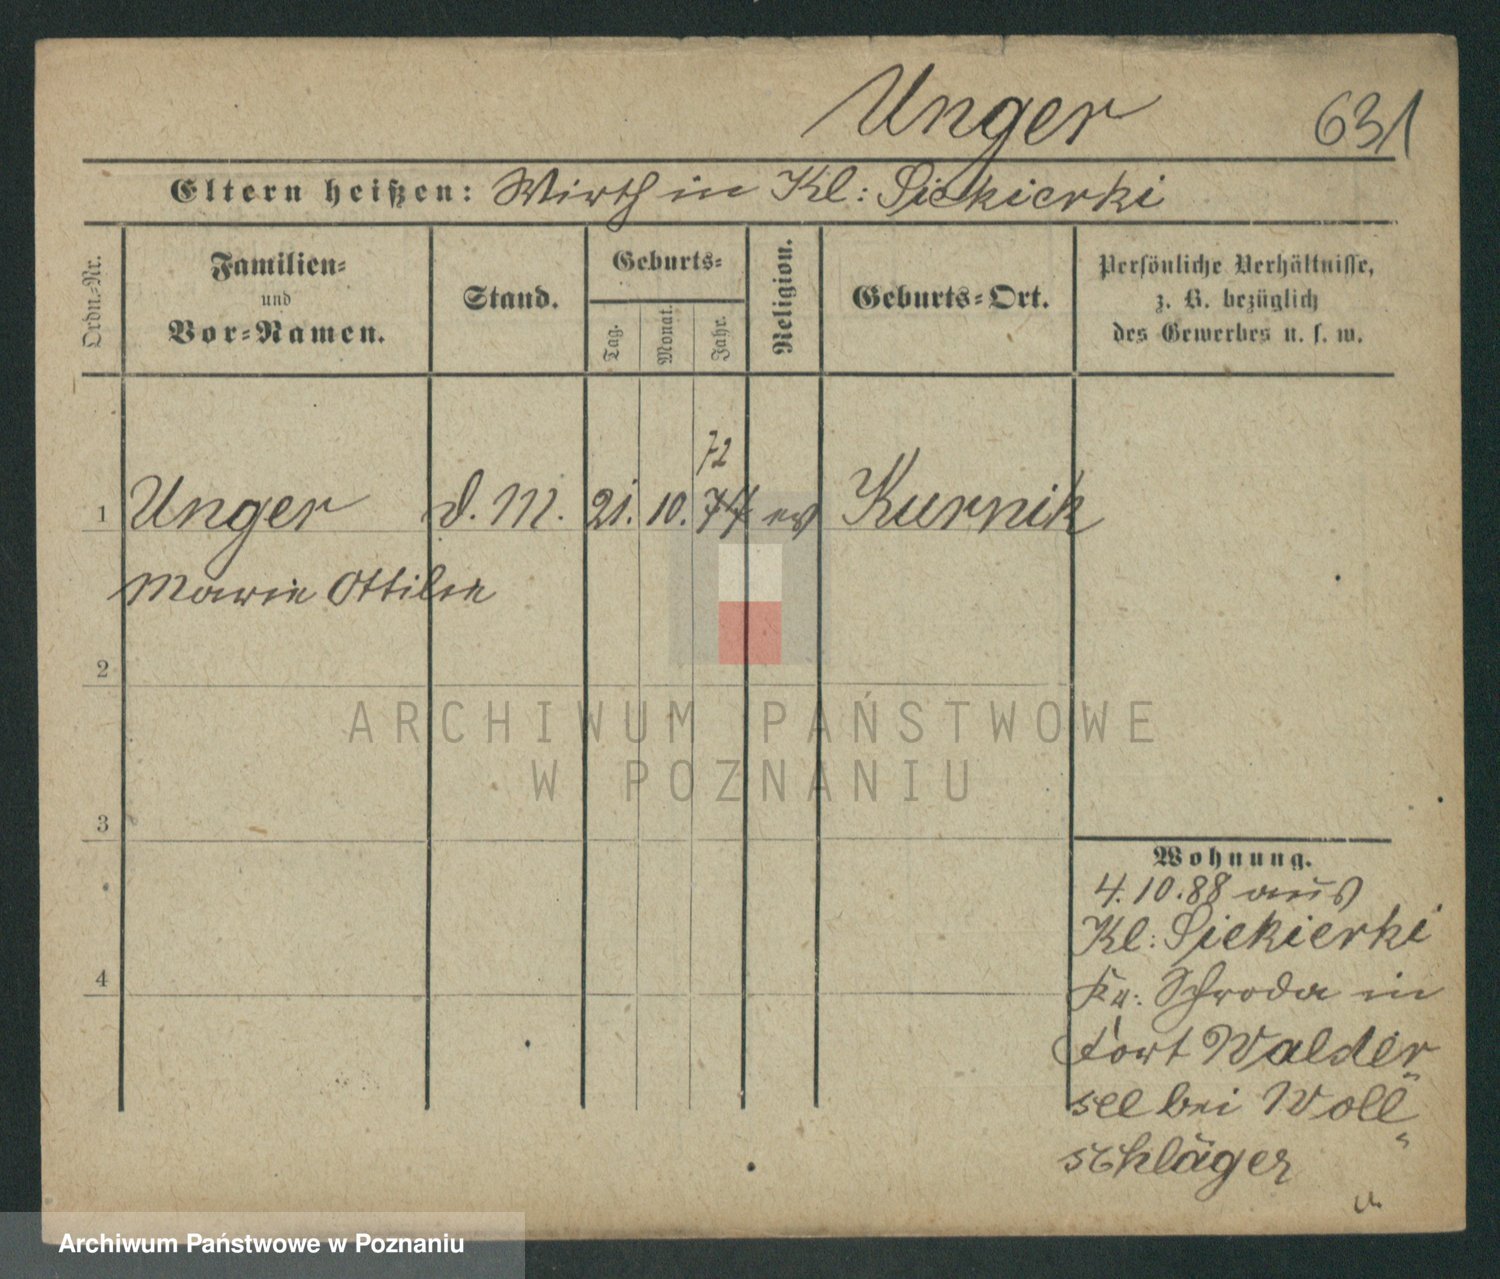 Unger 631
Eltern heißen: Wirth in Kl: Siekierki
Ordn.-Nr.
Familien-
und
Vor-Namen.
Stand.
Geburts-
Tag.
Monat.
Jahr.
Religion.
Geburts-Ort.
Persönliche Verhältnisse,
z. B. bezüglich
des Gewerbes u. s. w.
72
1 Unger d. M. 21. 10. 77 ev Kurnik
Marie Ottilie
2
3
4
Wohnung.
4.10.88 aus
Kl: Siekierki
Kr: Schroda in
Fort Walder-
see bei Woll-
schläger
ARCHIWUM PAŃSTWOWE
W POZNANIU
Archiwum Państwowe w Poznaniu